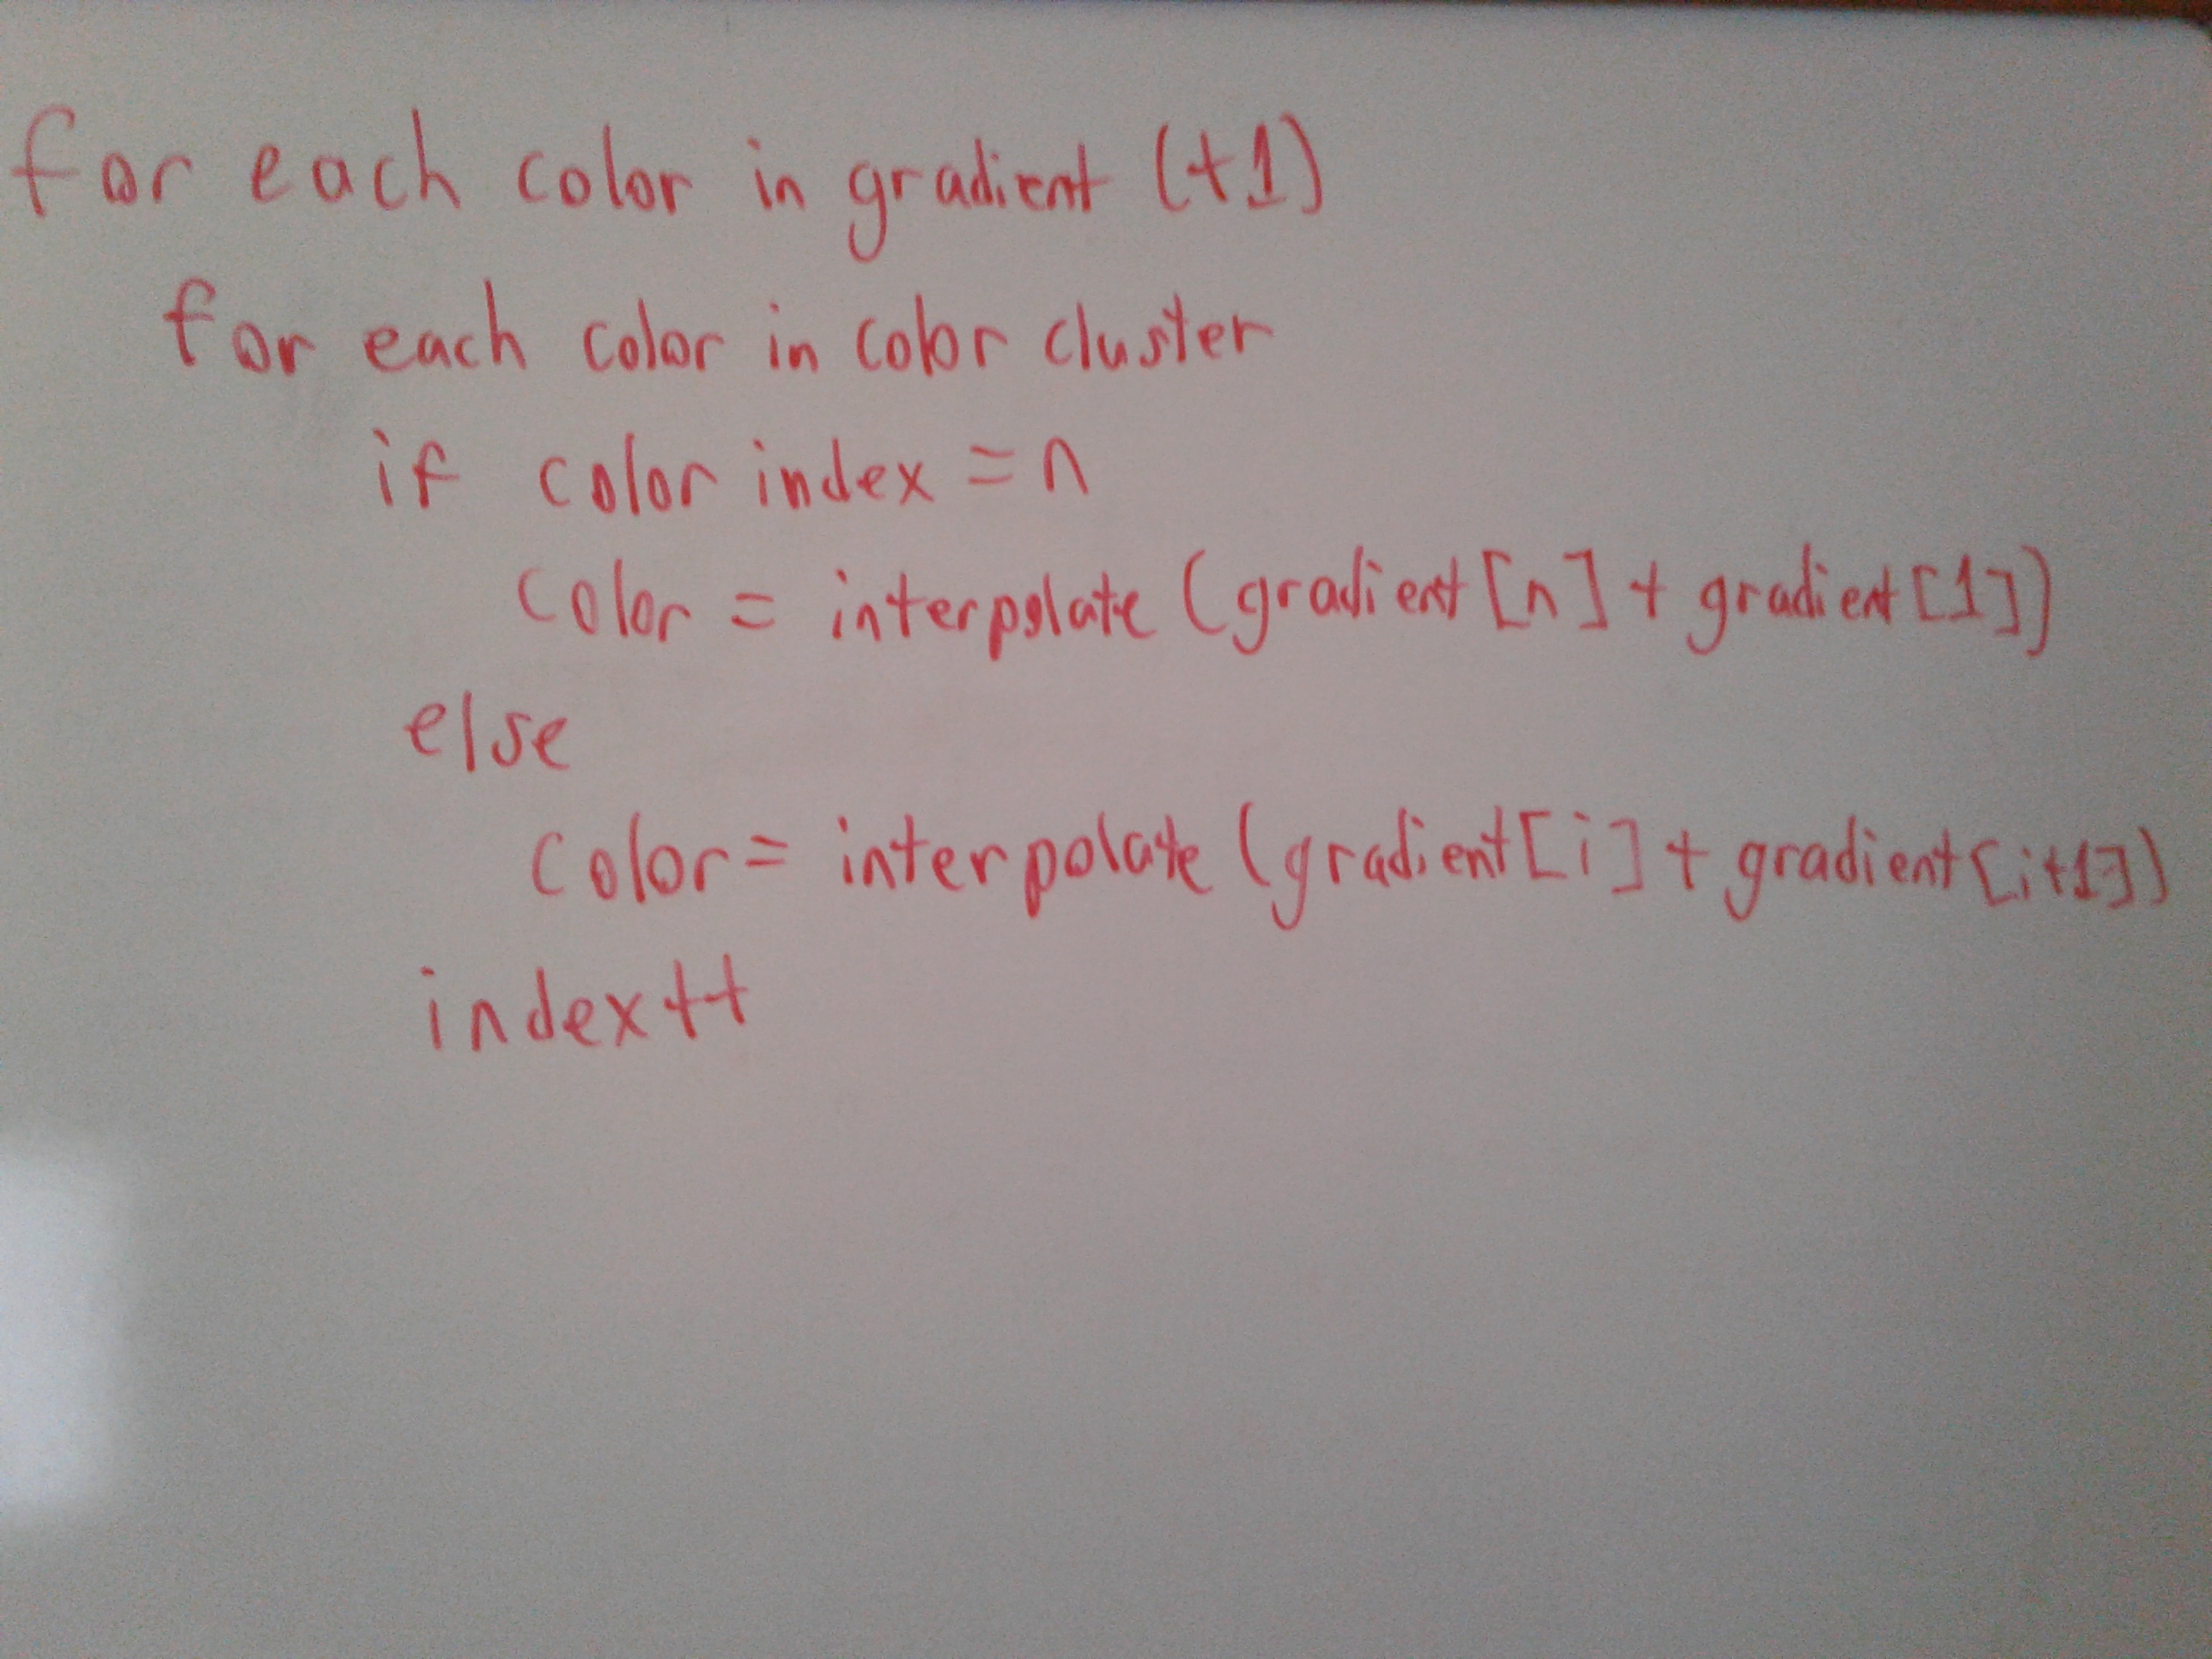 for each color in gradient (+1)
for each color in color cluster
if color index = n
color = interpolate (gradient[n] + gradient[1])
else
color = interpolate (gradient[i] + gradient[i+1])
index++